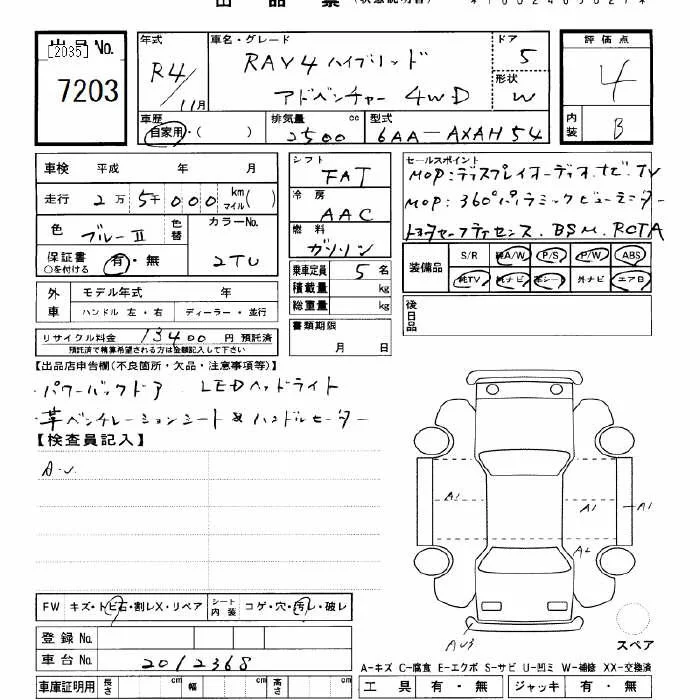 出品票（状態説明書）
出品No.
[2035]
7203
年式
R4/11月
車名・グレード
RAV4 ハイブリッド
アドベンチャー 4WD
ドア
5
形状
W
評価点
4
内装
B
車歴
自家用・(　　)
排気量 cc
2500
型式
6AA-AXAH54
車検 平成 年 月
走行 2万5千000 km マイル( )
色
ブルーII
色替
カラーNo.
2TU
保証書 有・無
○を付ける
シフト
FAT
冷房
AAC
燃料
ガソリン
乗車定員 5名
積載量 kg
総重量 kg
セールスポイント
MOP:ディスプレイオーディオ.ナビ.TV
MOP:360°パラミックビューモニター
トヨタセーフティセンス.BSM.RCTA
装備品
S/R 純A/W P/S P/W ABS
純TV 純ナビ 革シート 外ナビ エアB
外車
モデル年式 年
ハンドル 左・右 ディーラー・並行
リサイクル料金 13400 円 預託済
預託済で精算希望される方は金額記入して下さい
書類期限
月 日
後日品
【出品店申告欄(不良箇所・欠品・注意事項等)】
・パワーバックドア LEDヘッドライト
・革ベンチレーションシート&ハンドルヒーター
【検査員記入】
A.U
A1
A1
A1
A2
AU3
スペア
FW キズ・トビ石・割レX・リペア
シート内装 コゲ・穴・汚レ・破レ
登録No.
車台No. 2012368
車庫証明用 長さ cm 幅 cm cm
A−キズ C−腐食 E−エクボ S−サビ U−凹ミ W−補修 XX−交換済
工具 有・無 ジャッキ 有・無